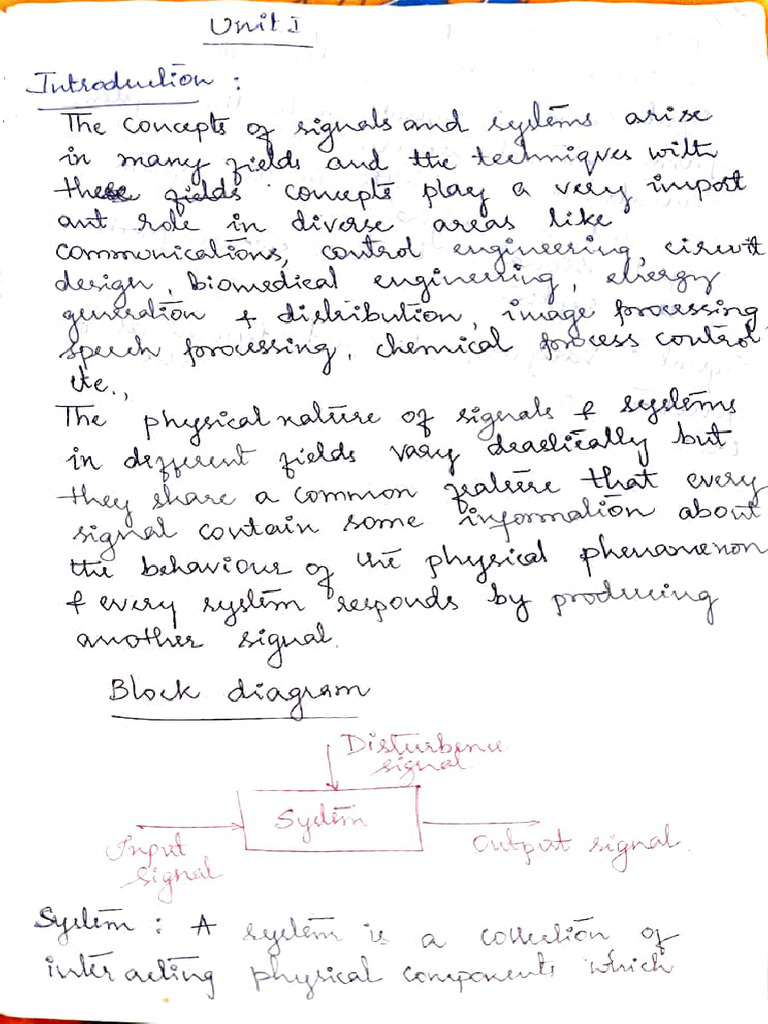 Unit I
Introduction :
The concepts of signals and systems arise
in many fields and the techniques with
these fields concepts play a very import
ant role in diverse areas like
communications, control engineering, circuit
design, biomedical engineering, energy
generation & distribution, image processing
speech processing, chemical process control
etc.,
The physical nature of signals & systems
in different fields vary drastically but
they share a common feature that every
signal contain some information about
the behaviour of the physical phenomenon
& every system responds by producing
another signal.
Block diagram
Disturbence
signal
System
Input
signal
Output signal.
System : A system is a collection of
inter acting physical components which